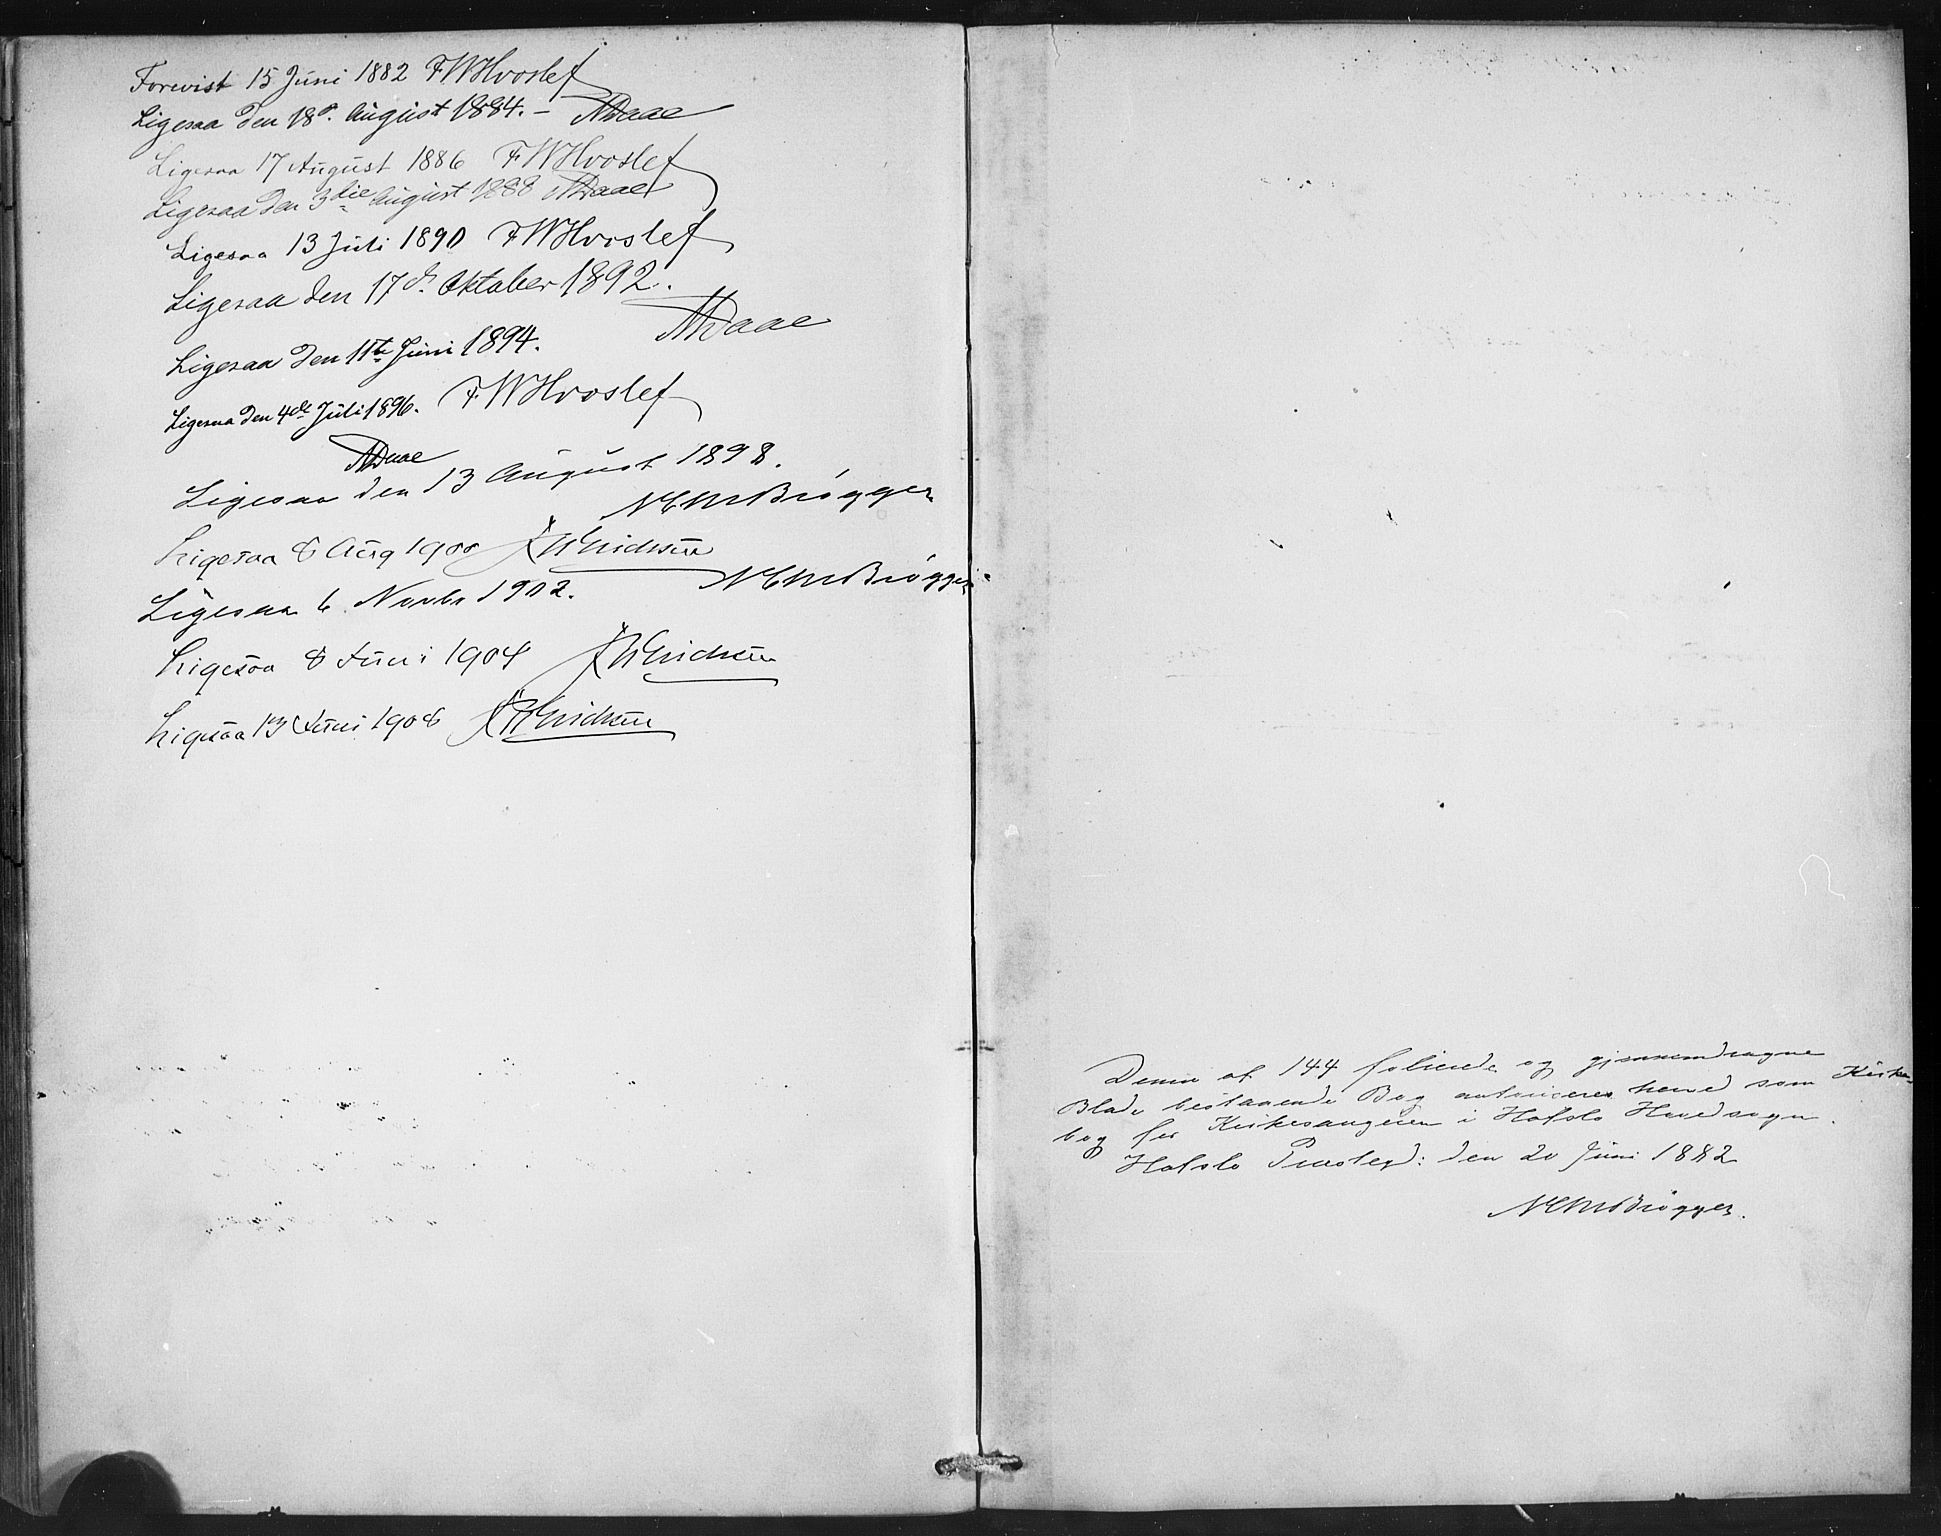 Forevist 15 Juni 1882 FWHvoslef
Ligesaa den 18d. August 1884. – ADaae
Ligesaa 17 August 1886 FWHvoslef
Ligesaa den 3die August 1888 ADaae
Ligesaa 13 Juli 1890 FWHvoslef
Ligesaa den 17d. Oktober 1892.
ADaae
Ligesaa den 11te Juni 1894.
FWHvoslef
Ligesaa den 4de Juli 1896.
ADaae
Ligesaa den 13 August 1898.
NCMBrøgger
Ligesaa 8 Aug 1900 Erichsen
Ligesaa 6 Novbr 1902. NCMBrøgger
Ligesaa 8 Juni 1904 Erichsen
Ligesaa 13 Juni 1908 Erichsen
Denne af 144 folierede og gjennemdragne
Blade bestaaende Bog autoriseres herved som Kirke-
bog for Kirkesangeren i Hafslo Hovedsogn.
Hafslo Prestegd: den 20 Juni 1882
NCMBrøgger.